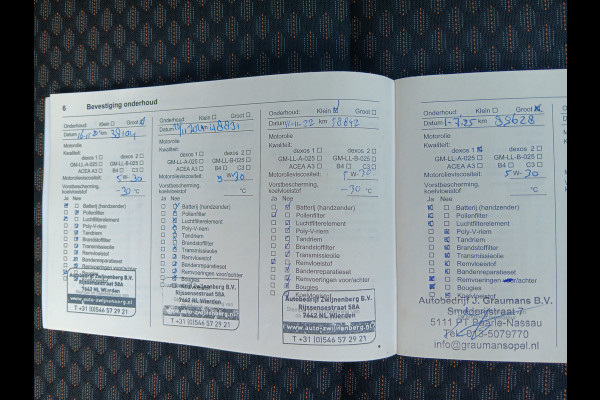 6 Bevestiging onderhoud
Onderhoud: Klein Groot
Datum km
Motorolie
Kwaliteit:
dexos 1 dexos 2
GM-LL-A-025 GM-LL-B-025
ACEA A3 B4 C3
Motorolieviscositeit 5 W 30
Vorstbescherming,
koelvloeistof -30 °C
Ja Nee
Batterij (handzender)
Pollenfilter
Luchtfilterelement
Poly-V-riem
Tandriem
Brandstoffilter
Transmissieolie
Remvloeistof
Bandenreparatieset
Remvoeringen voor/achter
Autobedrijf Zwijnenberg B.V.
Rijssensestraat 58A
7642 NL Wierden
www.auto-zwijnenberg.nl
T +31 (0)546 57 29 21
Onderhoud: Klein Groot
Datum km
Motorolie
Kwaliteit:
dexos 1 dexos 2
GM-LL-A-025 GM-LL-B-025
ACEA A3 B4 C3
Motorolieviscositeit 5 W-30
Vorstbescherming,
koelvloeistof -30 °C
Ja Nee
Batterij (handzender)
Pollenfilter
Luchtfilterelement
Poly-V-riem
Tandriem
Brandstoffilter
Transmissieolie
Remvloeistof
Bandenreparatieset
Remvoeringen voor/achter
Autobedrijf Zwijnenberg B.V.
Rijssensestraat 58A
7642 NL Wierden
www.auto-zwijnenberg.nl
T +31 (0)546 57 29 21
Onderhoud: Klein Groot
Datum 11-11-22 km
Motorolie
Kwaliteit:
dexos 1 dexos 2
GM-LL-A-025 GM-LL-B-025
ACEA A3 B4 C3
Motorolieviscositeit 5 W-30
Vorstbescherming,
koelvloeistof -30 °C
Ja Nee
Batterij (handzender)
Pollenfilter
Luchtfilterelement
Poly-V-riem
Tandriem
Brandstoffilter
Transmissieolie
Remvloeistof
Bandenreparatieset
Remvoeringen voor/achter
Bougies
Autobedrijf Zwijnenberg B.V.
Rijssensestraat 58A
7642 NL Wierden
www.auto-zwijnenberg.nl
T +31 (0)546 57 29 21
Onderhoud: Klein Groot
Datum 1-7-25 km 59628
Motorolie
Kwaliteit:
dexos 1 dexos 2
GM-LL-A-025 GM-LL-B-025
ACEA A3 B4 C3
Motorolieviscositeit 5 W-30
Vorstbescherming,
koelvloeistof °C
Ja Nee
Batterij (handzender)
Pollenfilter
Luchtfilterelement
Poly-V-riem
Tandriem
Brandstoffilter
Transmissieolie
Remvloeistof
Bandenreparatieset
Remvoeringen voor/achter
Bougies
Koelvloeistof
Autobedrijf J. Graumans B.V.
Smederijstraat 7
5111 PT Baarle-Nassau
Tel. 013-5079770
info@graumansopel.nl